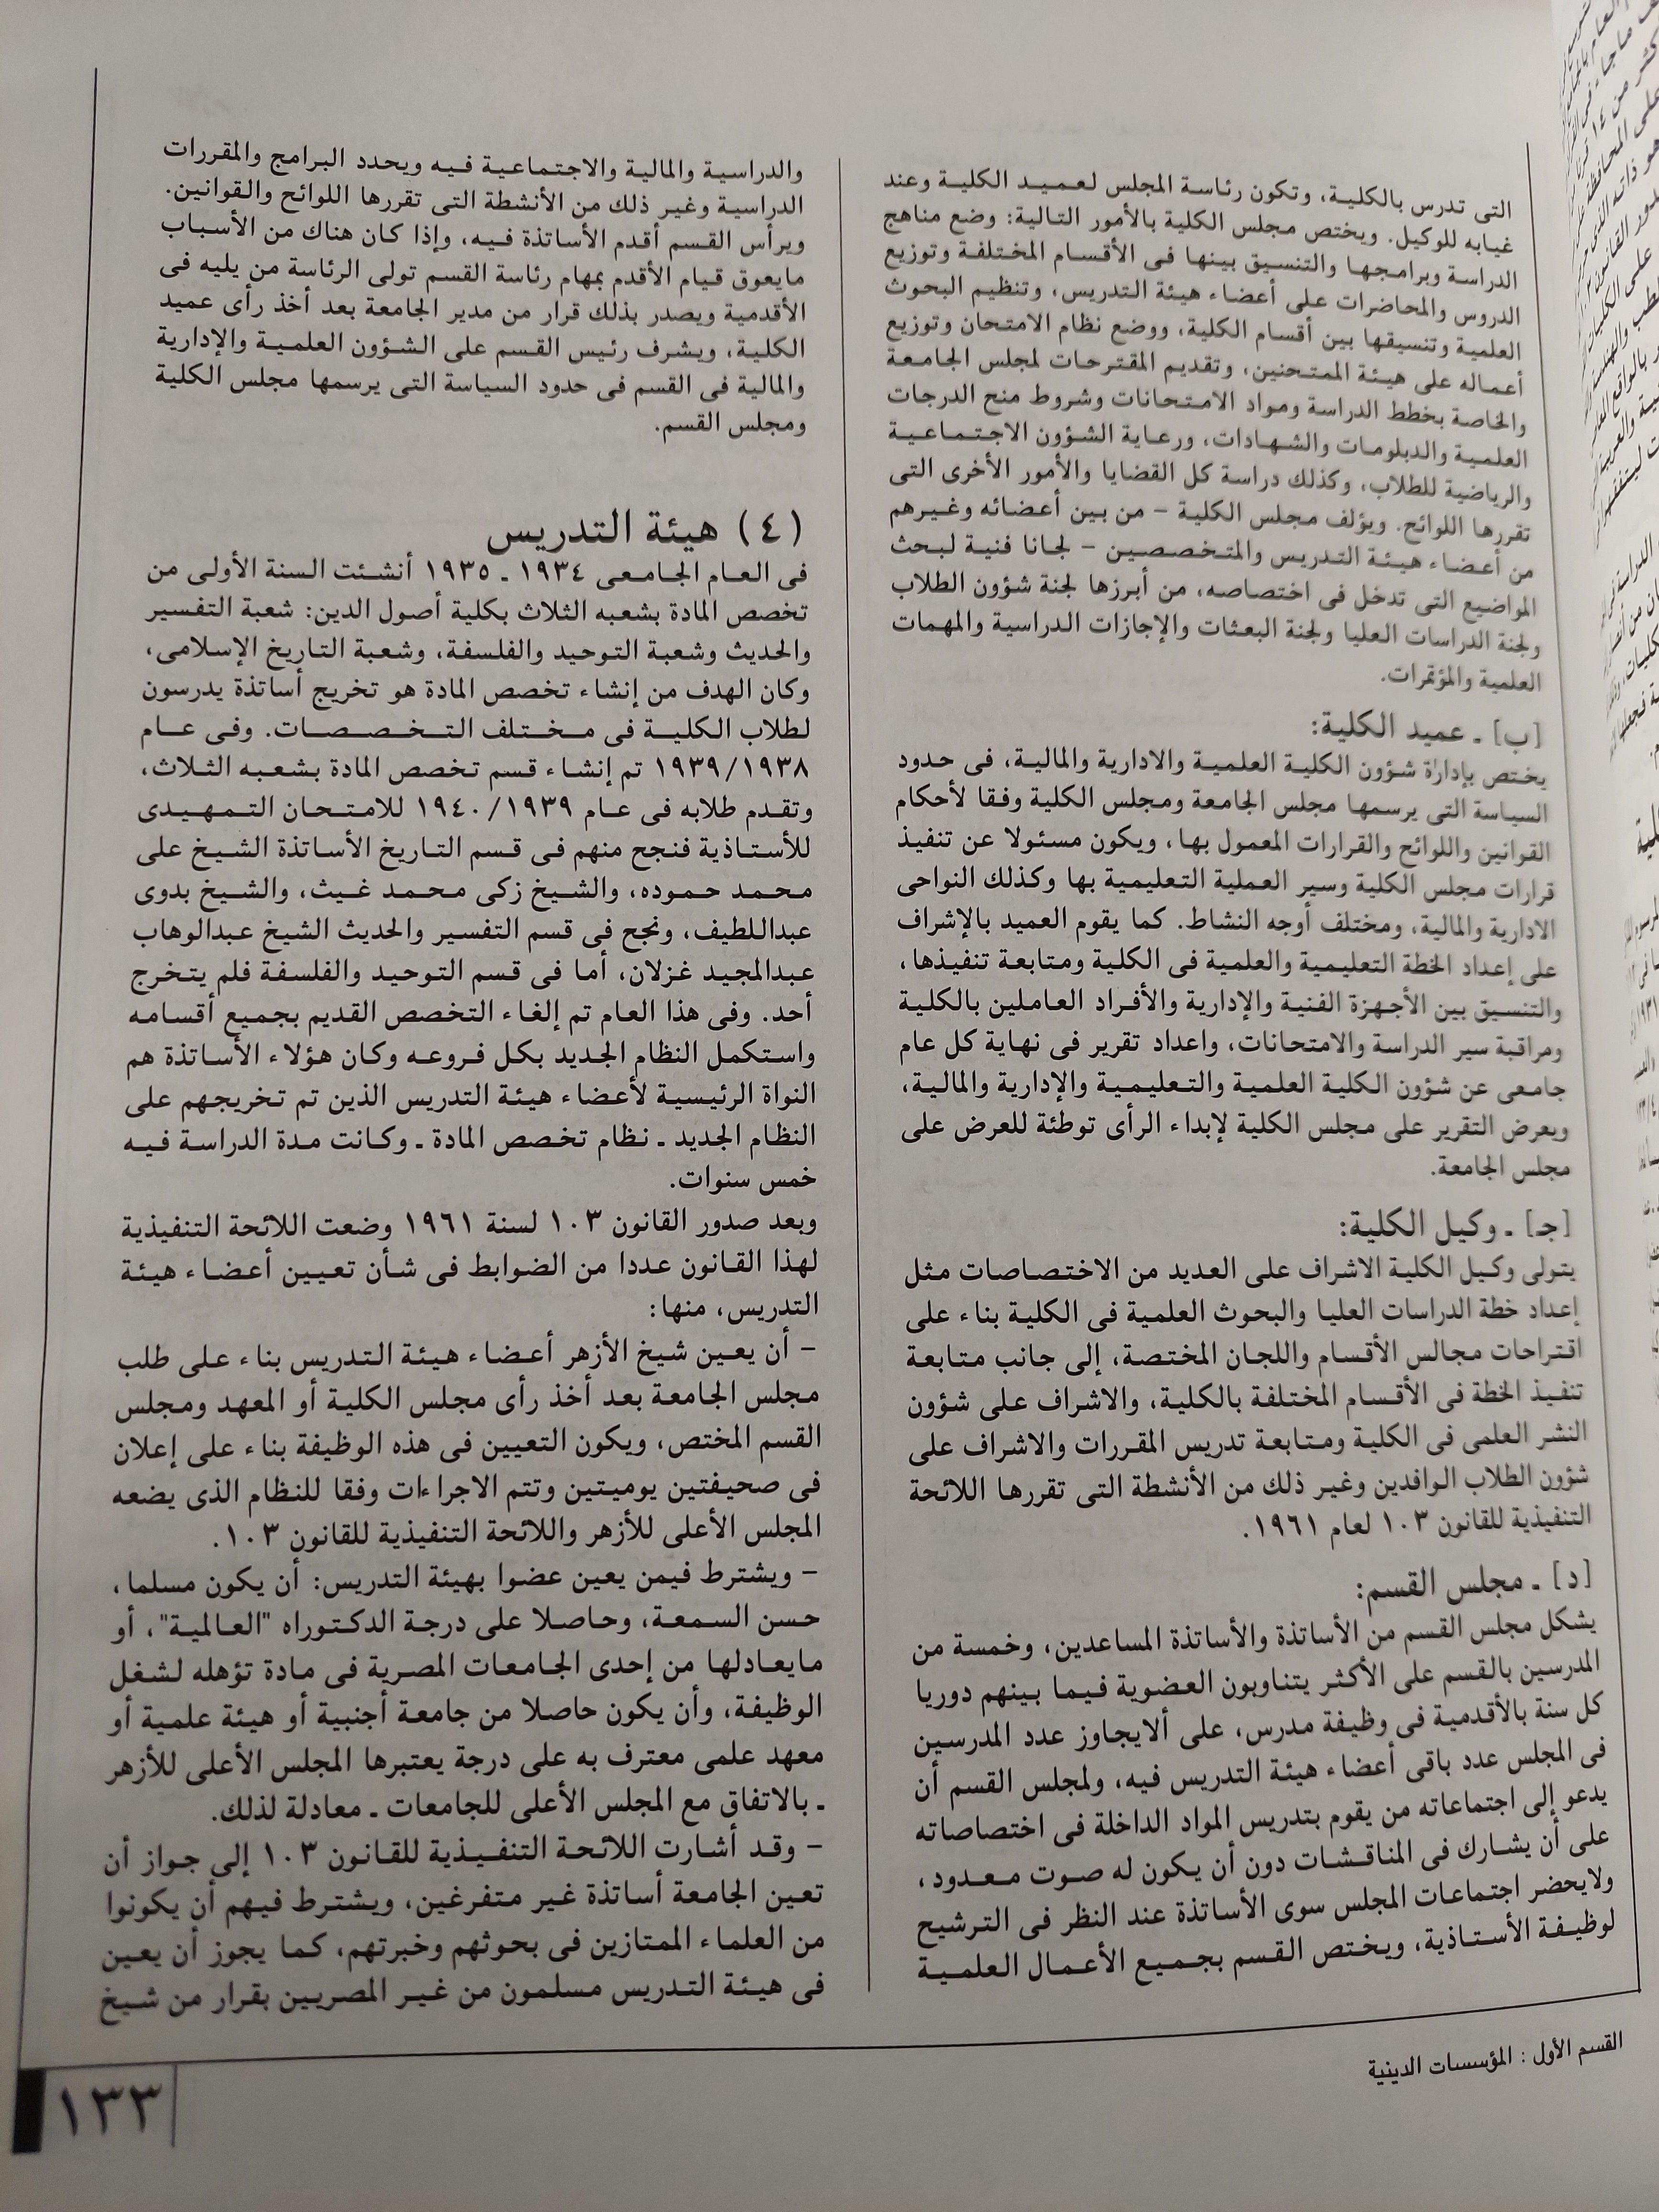 التى تدرس بالكلية، وتكون رئاسة المجلس لعميد الكلية وعند
غيابه للوكيل. ويختص مجلس الكلية بالأمور التالية: وضع مناهج
الدراسة وبرامجها والتنسيق بينها فى الأقسام المختلفة وتوزيع
الدروس والمحاضرات على أعضاء هيئة التدريس، وتنظيم البحوث
العلمية وتنسيقها بين أقسام الكلية، ووضع نظام الامتحان وتوزيع
أعماله على هيئة الممتحنين، وتقديم المقترحات لمجلس الجامعة
والخاصة بخطط الدراسة ومواد الامتحانات وشروط منح الدرجات
العلمية والدبلومات والشهادات، ورعاية الشؤون الاجتماعية
والرياضية للطلاب، وكذلك دراسة كل القضايا والأمور الأخرى التى
تقررها اللوائح. ويؤلف مجلس الكلية – من بين أعضائه وغيرهم
من أعضاء هيئة التدريس والمتخصصين – لجانا فنية لبحث
المواضيع التى تدخل فى اختصاصه، من أبرزها لجنة شؤون الطلاب
ولجنة الدراسات العليا ولجنة البعثات والإجازات الدراسية والمهمات
العلمية والمؤتمرات.
[ب] ـ عميد الكلية:
يختص بإدارة شؤون الكلية العلمية والادارية والمالية، فى حدود
السياسة التى يرسمها مجلس الجامعة ومجلس الكلية وفقا لأحكام
القوانين واللوائح والقرارات المعمول بها، ويكون مسئولا عن تنفيذ
قرارات مجلس الكلية وسير العملية التعليمية بها وكذلك النواحى
الادارية والمالية، ومختلف أوجه النشاط. كما يقوم العميد بالإشراف
على إعداد الخطة التعليمية والعلمية فى الكلية ومتابعة تنفيذها،
والتنسيق بين الأجهزة الفنية والإدارية والأفراد العاملين بالكلية
ومراقبة سير الدراسة والامتحانات، واعداد تقرير فى نهاية كل عام
جامعى عن شؤون الكلية العلمية والتعليمية والإدارية والمالية،
ويعرض التقرير على مجلس الكلية لإبداء الرأى توطئة للعرض على
مجلس الجامعة.
[جـ] ـ وكيل الكلية:
يتولى وكيل الكلية الاشراف على العديد من الاختصاصات مثل
إعداد خطة الدراسات العليا والبحوث العلمية فى الكلية بناء على
اقتراحات مجالس الأقسام واللجان المختصة، إلى جانب متابعة
تنفيذ الخطة فى الأقسام المختلفة بالكلية، والاشراف على شؤون
النشر العلمى فى الكلية ومتابعة تدريس المقررات والاشراف على
شؤون الطلاب الوافدين وغير ذلك من الأنشطة التى تقررها اللائحة
التنفيذية للقانون ١٠٣ لعام ١٩٦١.
[د] ـ مجلس القسم:
يشكل مجلس القسم من الأساتذة والأساتذة المساعدين، وخمسة من
المدرسين بالقسم على الأكثر يتناوبون العضوية فيما بينهم دوريا
كل سنة بالأقدمية فى وظيفة مدرس، على ألايجاوز عدد المدرسين
فى المجلس عدد باقى أعضاء هيئة التدريس فيه، ولمجلس القسم أن
يدعو إلى اجتماعاته من يقوم بتدريس المواد الداخلة فى اختصاصاته
على أن يشارك فى المناقشات دون أن يكون له صوت معدود،
ولايحضر اجتماعات المجلس سوى الأساتذة عند النظر فى الترشيح
لوظيفة الأستاذية، ويختص القسم بجميع الأعمال العلمية
والدراسية والمالية والاجتماعية فيه ويحدد البرامج والمقررات
الدراسية وغير ذلك من الأنشطة التى تقررها اللوائح والقوانين.
ويرأس القسم أقدم الأساتذة فيه، وإذا كان هناك من الأسباب
مايعوق قيام الأقدم بمهام رئاسة القسم تولى الرئاسة من يليه فى
الأقدمية ويصدر بذلك قرار من مدير الجامعة بعد أخذ رأى عميد
الكلية، ويشرف رئيس القسم على الشؤون العلمية والإدارية
والمالية فى القسم فى حدود السياسة التى يرسمها مجلس الكلية
ومجلس القسم.
(٤) هيئة التدريس
فى العام الجامعى ١٩٣٤ ـ ١٩٣٥ أنشئت السنة الأولى من
تخصص المادة بشعبه الثلاث بكلية أصول الدين: شعبة التفسير
والحديث وشعبة التوحيد والفلسفة، وشعبة التاريخ الإسلامى،
وكان الهدف من إنشاء تخصص المادة هو تخريج أساتذة يدرسون
لطلاب الكلية فى مختلف التخصصات. وفى عام
١٩٣٩/١٩٣٨ تم إنشاء قسم تخصص المادة بشعبه الثلاث،
وتقدم طلابه فى عام ١٩٤٠/١٩٣٩ للامتحان التمهيدى
للأستاذية فنجح منهم فى قسم التاريخ الأساتذة الشيخ على
محمد حموده، والشيخ زكى محمد غيث، والشيخ بدوى
عبداللطيف، ونجح فى قسم التفسير والحديث الشيخ عبدالوهاب
عبدالمجيد غزلان، أما فى قسم التوحيد والفلسفة فلم يتخرج
أحد. وفى هذا العام تم إلغاء التخصص القديم بجميع أقسامه
واستكمل النظام الجديد بكل فروعه وكان هؤلاء الأساتذة هم
النواة الرئيسية لأعضاء هيئة التدريس الذين تم تخريجهم على
النظام الجديد ـ نظام تخصص المادة ـ وكانت مدة الدراسة فيه
خمس سنوات.
وبعد صدور القانون ١٠٣ لسنة ١٩٦١ وضعت اللائحة التنفيذية
لهذا القانون عددا من الضوابط فى شأن تعيين أعضاء هيئة
التدريس، منها:
– أن يعين شيخ الأزهر أعضاء هيئة التدريس بناء على طلب
مجلس الجامعة بعد أخذ رأى مجلس الكلية أو المعهد ومجلس
القسم المختص، ويكون التعيين فى هذه الوظيفة بناء على إعلان
فى صحيفتين يوميتين وتتم الاجراءات وفقا للنظام الذى يضعه
المجلس الأعلى للأزهر واللائحة التنفيذية للقانون ١٠٣.
– ويشترط فيمن يعين عضوا بهيئة التدريس: أن يكون مسلما،
حسن السمعة، وحاصلا على درجة الدكتوراه "العالمية"، أو
مايعادلها من إحدى الجامعات المصرية فى مادة تؤهله لشغل
الوظيفة، وأن يكون حاصلا من جامعة أجنبية أو هيئة علمية أو
معهد علمى معترف به على درجة يعتبرها المجلس الأعلى للأزهر
ـ بالاتفاق مع المجلس الأعلى للجامعات ـ معادلة لذلك.
– وقد أشارت اللائحة التنفيذية للقانون ١٠٣ إلى جواز أن
تعين الجامعة أساتذة غير متفرغين، ويشترط فيهم أن يكونوا
من العلماء الممتازين فى بحوثهم وخبرتهم، كما يجوز أن يعين
فى هيئة التدريس مسلمون من غير المصريين بقرار من شيخ
القسم الأول : المؤسسات الدينية
١٣٣